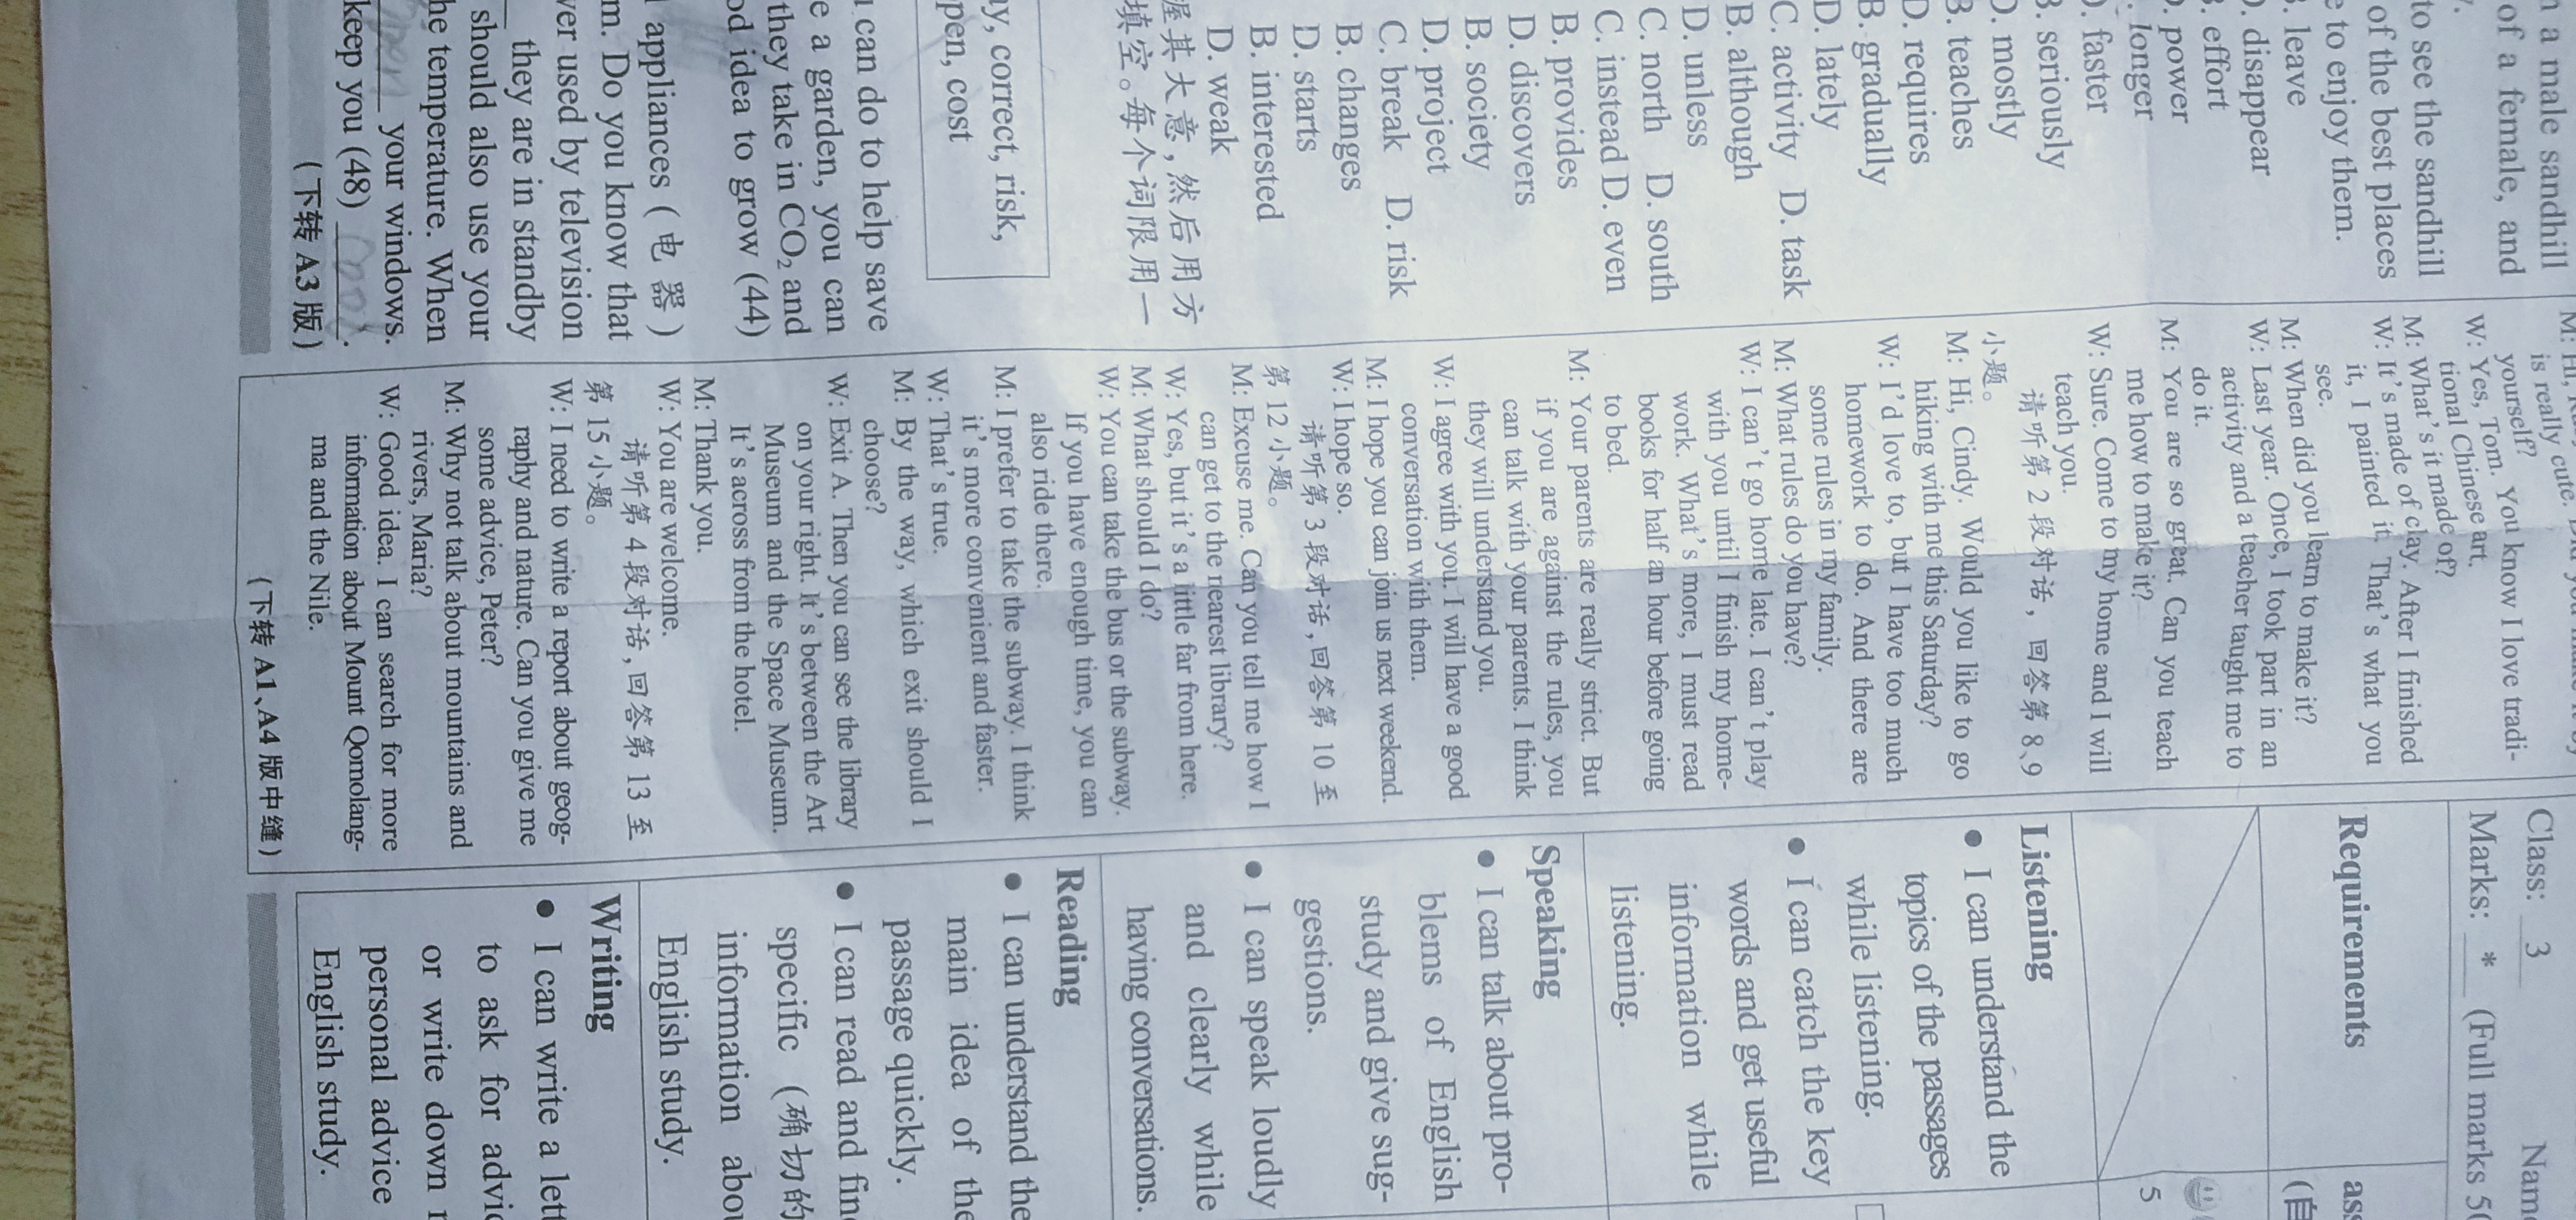 n a male sandhill
of a female, and
to see the sandhill
of the best places
e to enjoy them.
leave
disappear
effort
power
longer
faster
B. seriously
D. mostly
B. teaches
D. requires
B. gradually
D. lately
C. activity D. task
B. although
D. unless
C. north D. south
C. instead D. even
B. provides
D. discovers
B. society
D. project
C. break D. risk
B. changes
D. starts
B. interested
D. weak
握其大意,然后用方
填空。每个词限用一
correct, risk,
pen, cost
can do to help save
e a garden, you can
they take in CO₂ and
od idea to grow (44)
appliances (电器)
m. Do you know that
ver used by television
they are in standby
should also use your
he temperature. When
your windows.
keep you (48)
(下转 A3 版)
is really cute.
yourself?
W: Yes, Tom. You know I love tradi-
tional Chinese art.
M: What's it made of?
W: It's made of clay. After I finished
it, I painted it. That's what you
see.
M: When did you learn to make it?
W: Last year. Once, I took part in an
activity and a teacher taught me to
do it.
M: You are so great. Can you teach
me how to make it?
W: Sure. Come to my home and I will
teach you.
请听第 2 段对话, 回答第 8、9
小题。
M: Hi, Cindy. Would you like to go
hiking with me this Saturday?
W: I'd love to, but I have too much
homework to do. And there are
some rules in my family.
M: What rules do you have?
W: I can't go home late. I can't play
with you until I finish my home-
work. What's more, I must read
books for half an hour before going
to bed.
M: Your parents are really strict. But
if you are against the rules, you
can talk with your parents. I think
they will understand you.
W: I agree with you. I will have a good
conversation with them.
M: I hope you can join us next weekend.
W: I hope so.
请听第 3 段对话,回答第 10 至
第 12 小题。
M: Excuse me. Can you tell me how I
can get to the nearest library?
W: Yes, but it's a little far from here.
M: What should I do?
W: You can take the bus or the subway.
If you have enough time, you can
also ride there.
M: I prefer to take the subway. I think
it's more convenient and faster.
W: That's true.
M: By the way, which exit should I
choose?
W: Exit A. Then you can see the library
on your right. It's between the Art
Museum and the Space Museum.
It's across from the hotel.
M: Thank you.
W: You are welcome.
请听第 4 段对话,回答第 13 至
第 15 小题。
W: I need to write a report about geog-
raphy and nature. Can you give me
some advice, Peter?
M: Why not talk about mountains and
rivers, Maria?
W: Good idea. I can search for more
information about Mount Qomolang-
ma and the Nile.
(下转 A1、A4 版中缝)
Class: 3
Marks: * (Full marks 5
Requirements
5
Listening
● I can understand the
topics of the passages
while listening.
● I can catch the key
words and get useful
information while
listening.
Speaking
● I can talk about pro-
blems of English
study and give sug-
gestions.
● I can speak loudly
and clearly while
having conversations.
Reading
● I can understand the
main idea of the
passage quickly.
● I can read and find
specific (确切的
information abou
English study.
Writing
● I can write a lett
to ask for advic
or write down
personal advice
English study.